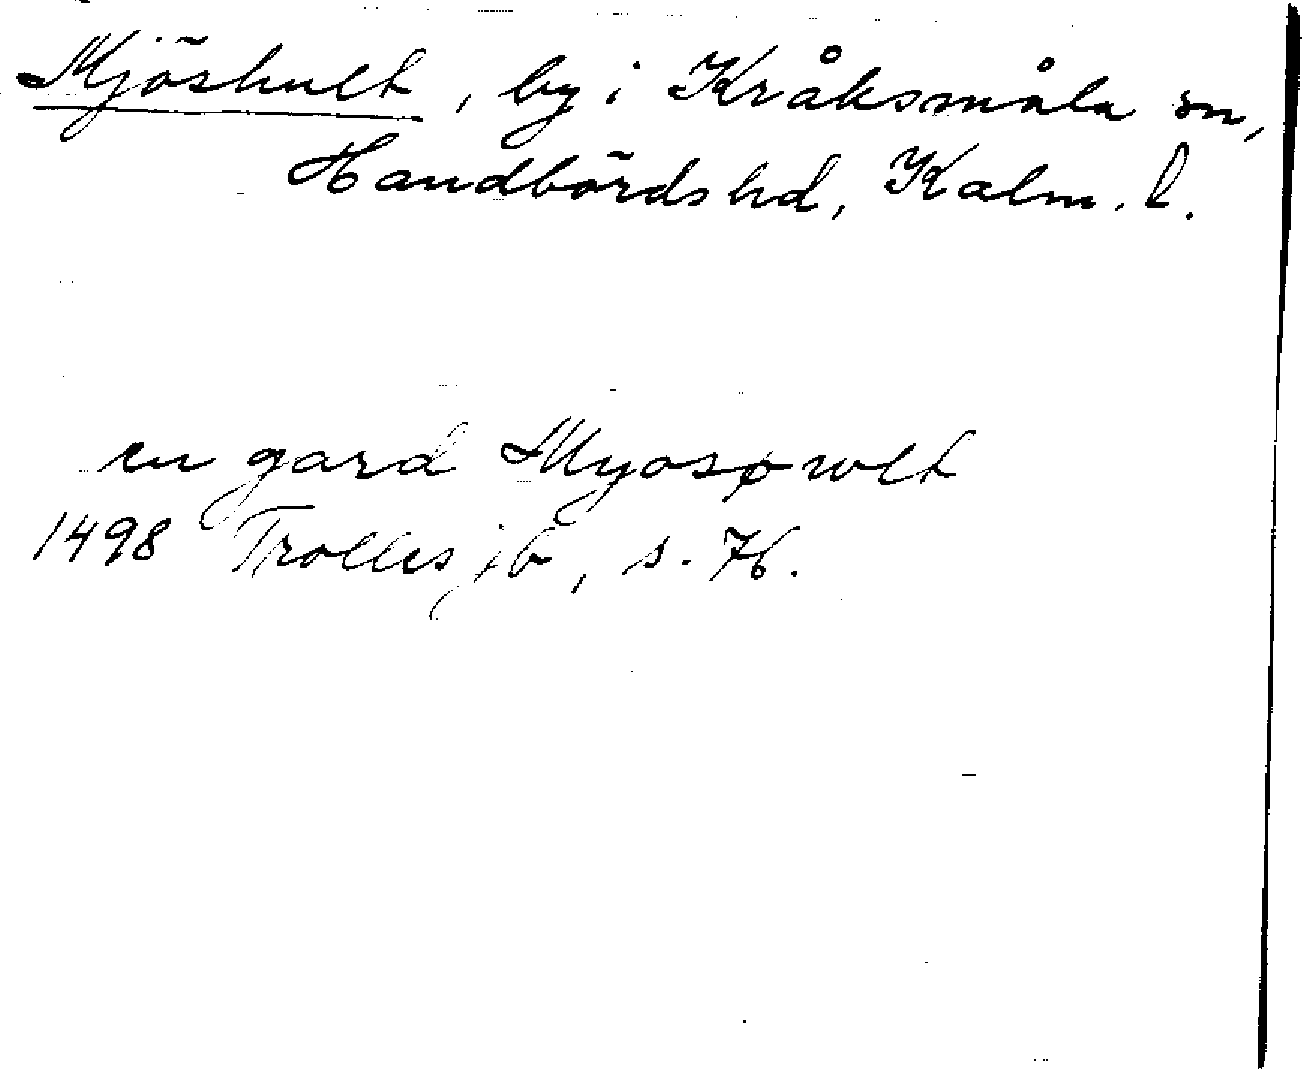 Mjöshult, by i Kråksmåla sn,
Handbörds hd, Kalm. l.
en gard Myosøwlt
1498 Trolles jb, s. 76.